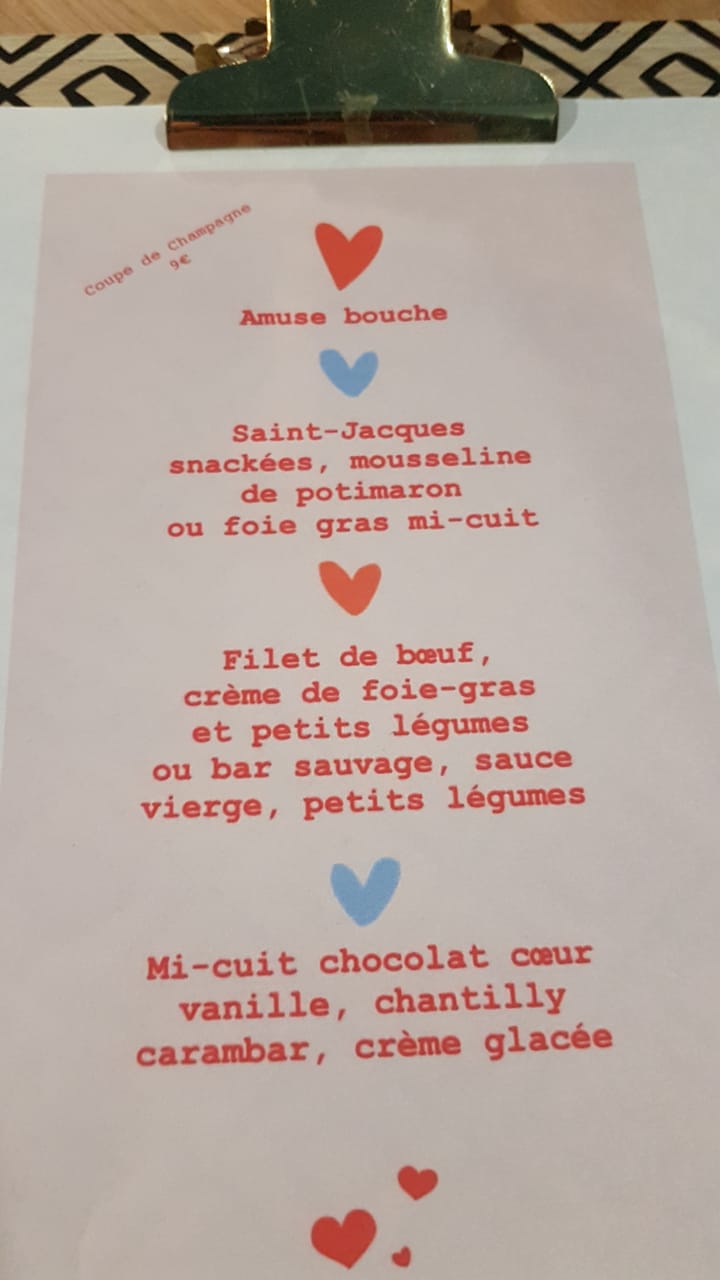 Coupe de Champagne
9€
Amuse bouche
Saint-Jacques
snackées, mousseline
de potimaron
ou foie gras mi-cuit
Filet de bœuf,
crème de foie-gras
et petits légumes
ou bar sauvage, sauce
vierge, petits légumes
Mi-cuit chocolat cœur
vanille, chantilly
carambar, crème glacée